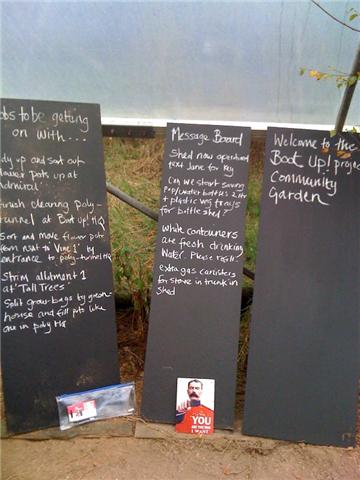 obs to be getting
on with...
dy up and sort out
flower pots up at
admiral'
finish clearing poly-
tunnel at Boot Up! HQ
Sort and move flower pots
from next to 'Vine 1' by
entrance to poly-tunnel HQ
Strim allotment 1
at 'Tall Trees'
Split grow-bags by green-
house and fill pots like
one in poly HQ
Message Board
Shed now operational
text Jane for key
Can we start saving
Pop/water bottles 2 ltr
+ plastic veg trays
for bottle shed?
White containers
are fresh drinking
water. Please refill
extra gas canisters
for stove in trunk in
shed
YOU
ARE THE MAN
I WANT
Welcome to the
Boot Up! project
Community
Garden